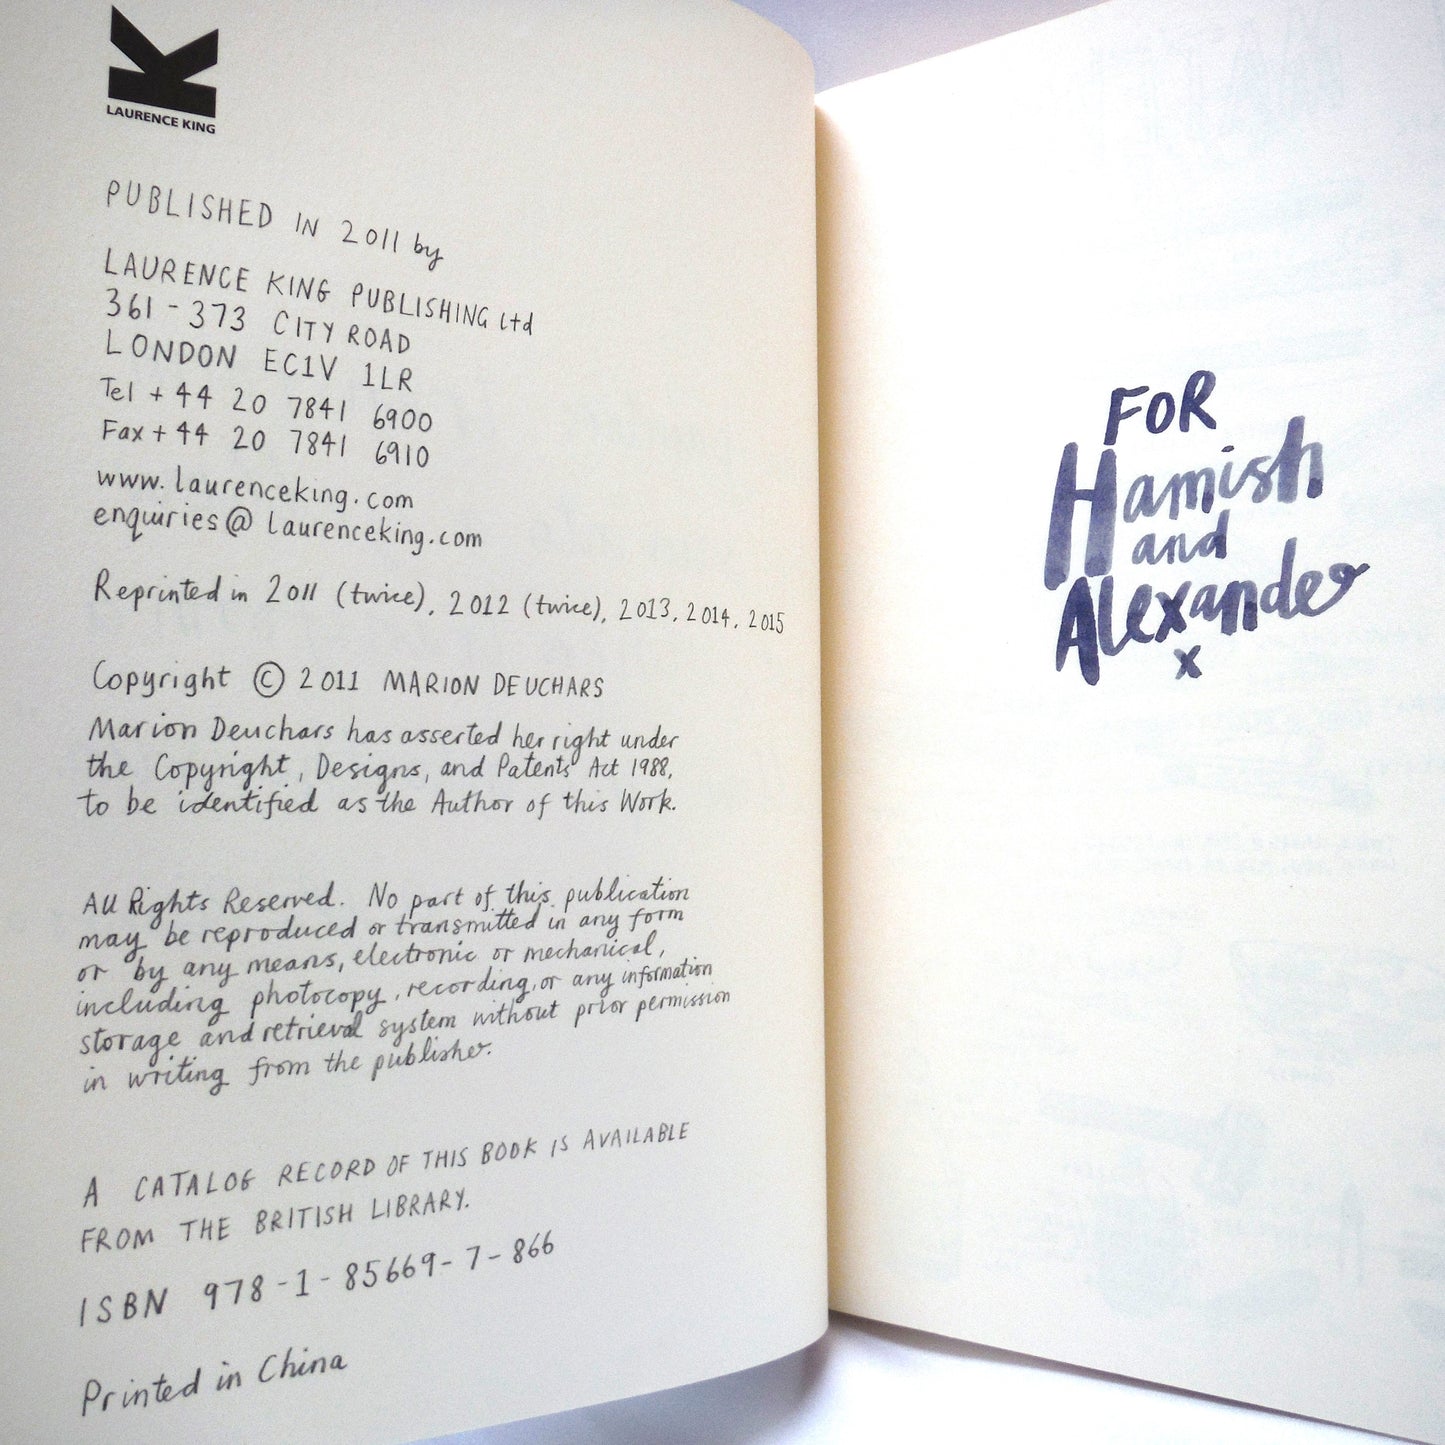 LAURENCE KING
PUBLISHED IN 2011 by
LAURENCE KING PUBLISHING Ltd
361 - 373 CITY ROAD
LONDON EC1V 1LR
Tel + 44 20 7841 6900
Fax + 44 20 7841 6910
www.laurenceking.com
enquiries@laurenceking.com
Reprinted in 2011 (twice), 2012 (twice), 2013, 2014, 2015
Copyright © 2011 MARION DEUCHARS
Marion Deuchars has asserted her right under
the Copyright, Designs, and Patents Act 1988,
to be identified as the Author of this Work.
All Rights Reserved. No part of this publication
may be reproduced or transmitted in any form
or by any means, electronic or mechanical,
including photocopy, recording, or any information
storage and retrieval system without prior permission
in writing from the publisher.
A CATALOG RECORD OF THIS BOOK IS AVAILABLE
FROM THE BRITISH LIBRARY.
ISBN 978-1-85669-7-866
Printed in China
FOR
Hamish
and
Alexander
x